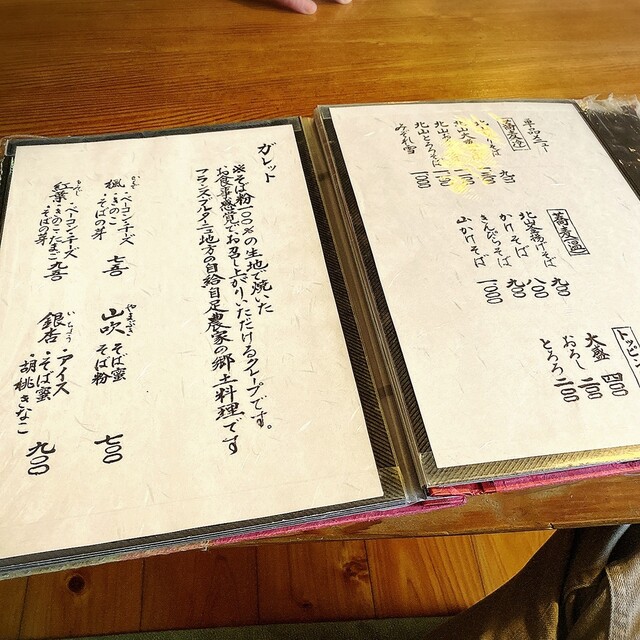 単品メニュー
蕎麦（冷）
九〇〇
北山大
北山おろしそば
北山とろろそば 一〇〇〇
みぞれ雪 一〇〇〇
蕎麦（温）
北山釜揚げそば 九〇〇
かけそば 八〇〇
きんぴらそば 九〇〇
山かけそば 一〇〇〇
トッピン
大盛 四〇〇
おろし 二〇〇
とろろ 二〇〇
ガレット
※そば粉一〇〇%の生地で焼いた
お食事感覚でお召し上がりいただけるクレープです。
フランスブルターニュ地方の自給自足農家の郷土料理です
かえで
楓 ・ベーコン・チーズ
・きのこ
・そばの芽 七五〇
もみじ
紅葉 ・ベーコン・チーズ
・きのこ・たまご 九五〇
・そばの芽
やまぶき
山吹 そば蜜
そば粉 七〇〇
いちょう
銀杏 ・アイス
・そば蜜
・胡桃きなこ 九〇〇